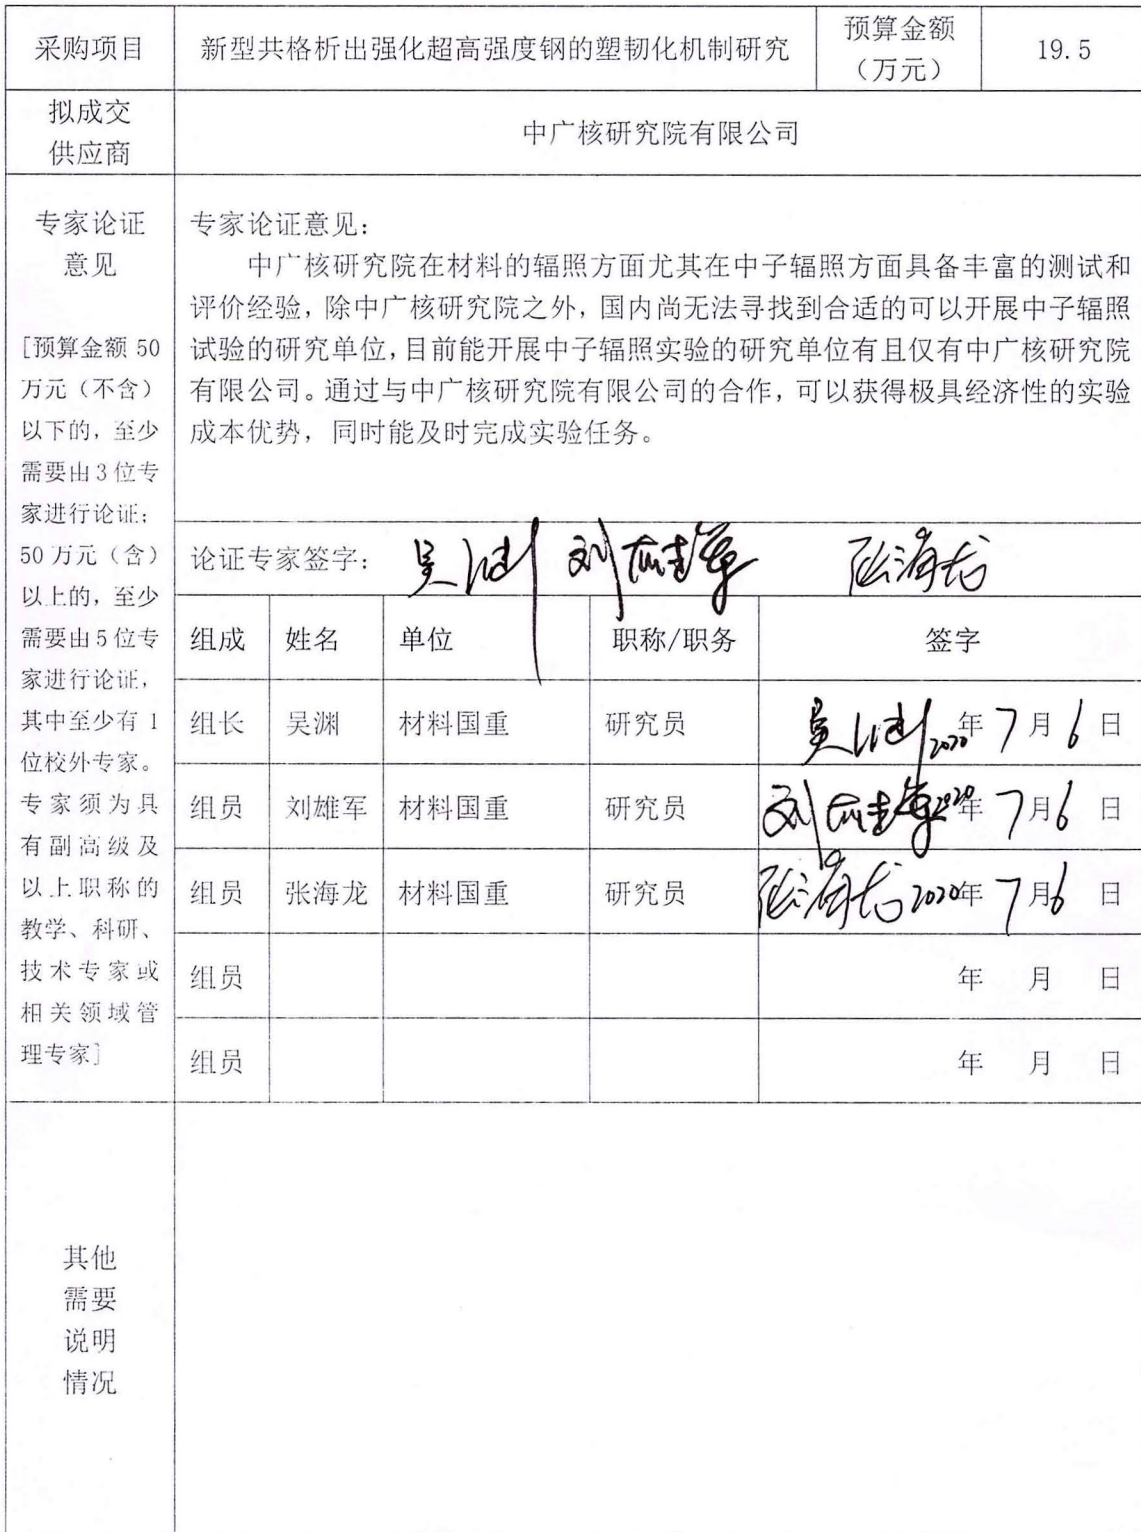 采购项目 新型共格析出强化超高强度钢的塑韧化机制研究 预算金额（万元） 19.5
拟成交
供应商
中广核研究院有限公司
专家论证
意见
[预算金额 50
万元（不含）
以下的，至少
需要由 3 位专
家进行论证；
50 万元（含）
以上的，至少
需要由 5 位专
家进行论证，
其中至少有 1
位校外专家。
专家须为具
有副高级及
以上职称的
教学、科研、
技术专家或
相关领域管
理专家]
专家论证意见：
中广核研究院在材料的辐照方面尤其在中子辐照方面具备丰富的测试和
评价经验，除中广核研究院之外，国内尚无法寻找到合适的可以开展中子辐照
试验的研究单位，目前能开展中子辐照实验的研究单位有且仅有中广核研究院
有限公司。通过与中广核研究院有限公司的合作，可以获得极具经济性的实验
成本优势，同时能及时完成实验任务。
论证专家签字： 吴渊 刘雄军 张海龙
组成 姓名 单位 职称/职务 签字
组长 吴渊 材料国重 研究员 吴渊 2020年 7月 6日
组员 刘雄军 材料国重 研究员 刘雄军 2020年 7月 6日
组员 张海龙 材料国重 研究员 张海龙 2020年 7月 6日
组员 年 月 日
组员 年 月 日
其他
需要
说明
情况